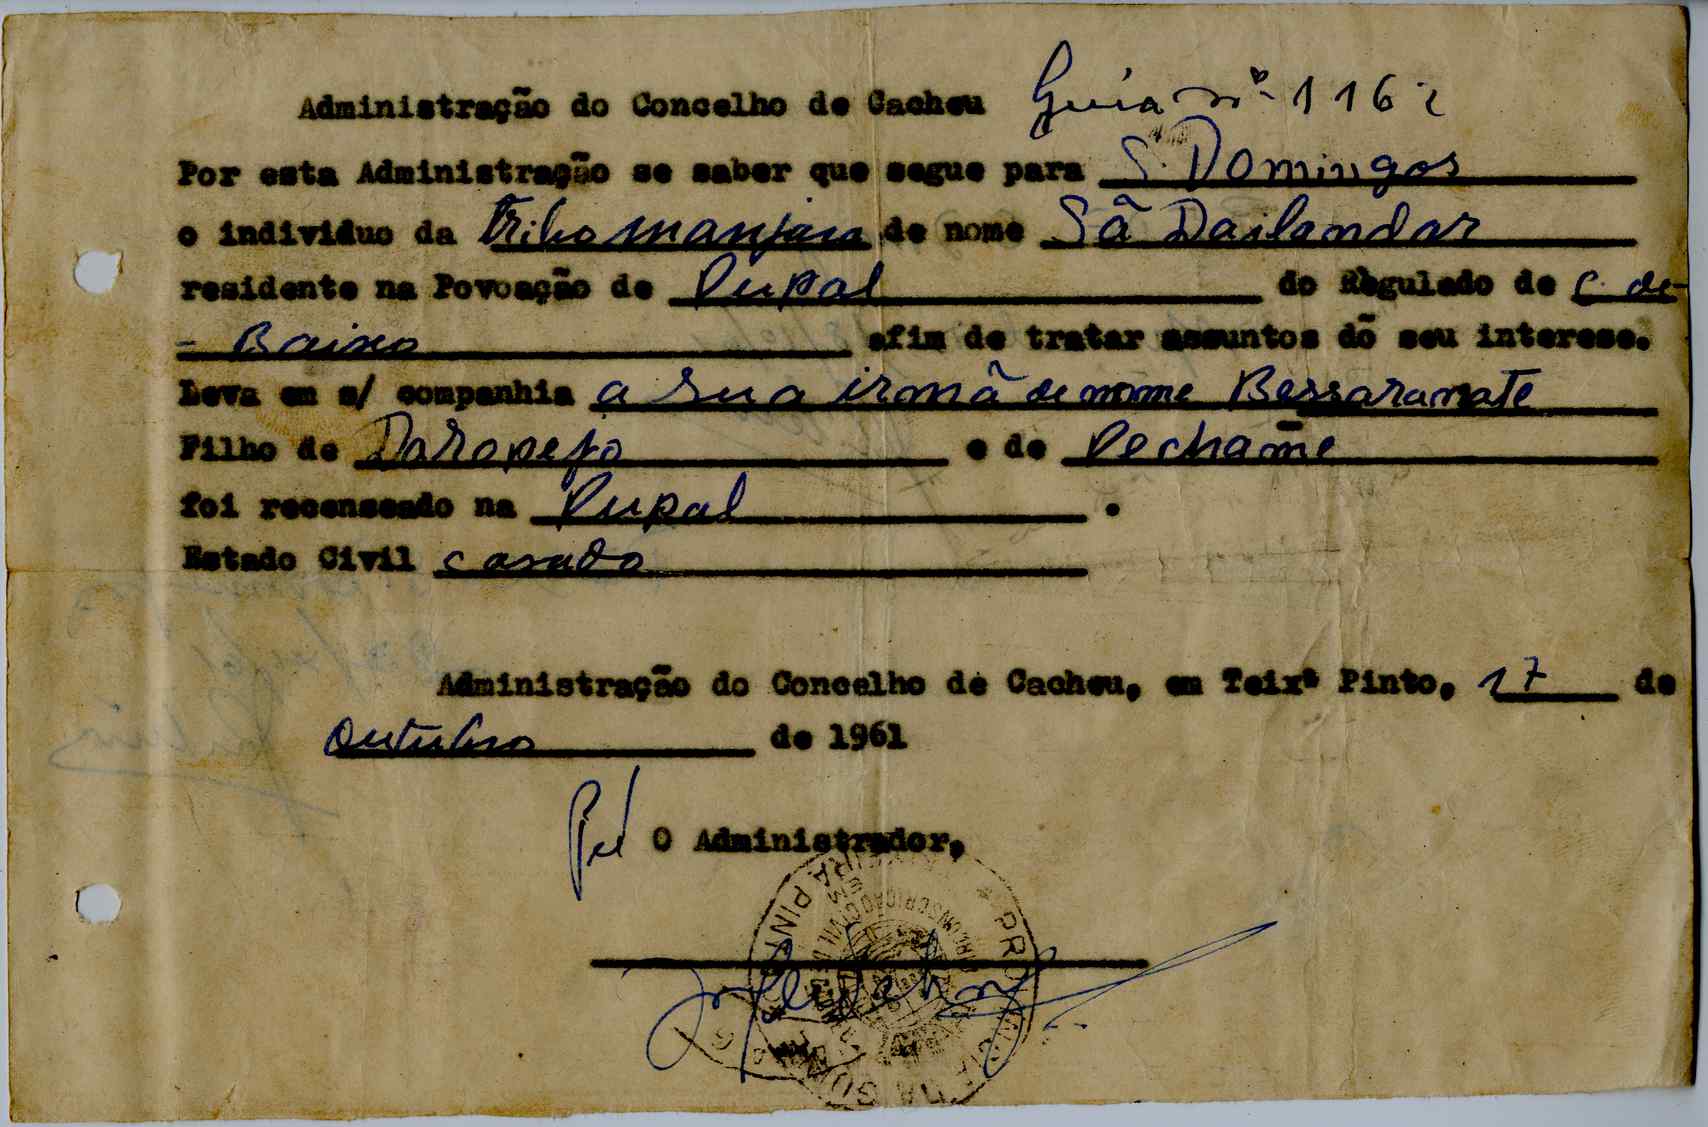 Administração do Concelho de Cacheu Guia nº 1162
Por esta Administração se saber que segue para S. Domingos
o individuo da tribo manjaca de nome Sã Dailandar
residente na Povoação de Pupal do Regulado de C. de-
- Baixo afim de tratar assuntos dõ seu interese.
Leva em s/ companhia a sua irmã de nome Bessaramate
Filho de Daropejo e de Pechame
foi recenseado na Pupal .
Estado Civil casado
Administração do Concelho de Cacheu, em Teixª Pinto, 17 de
outubro de 1961
Pel O Administrador,